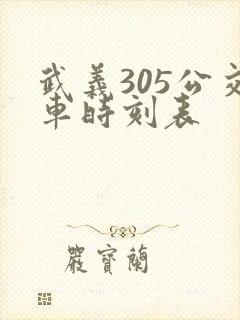 武義305公交
車時刻表
嚴寶蘭